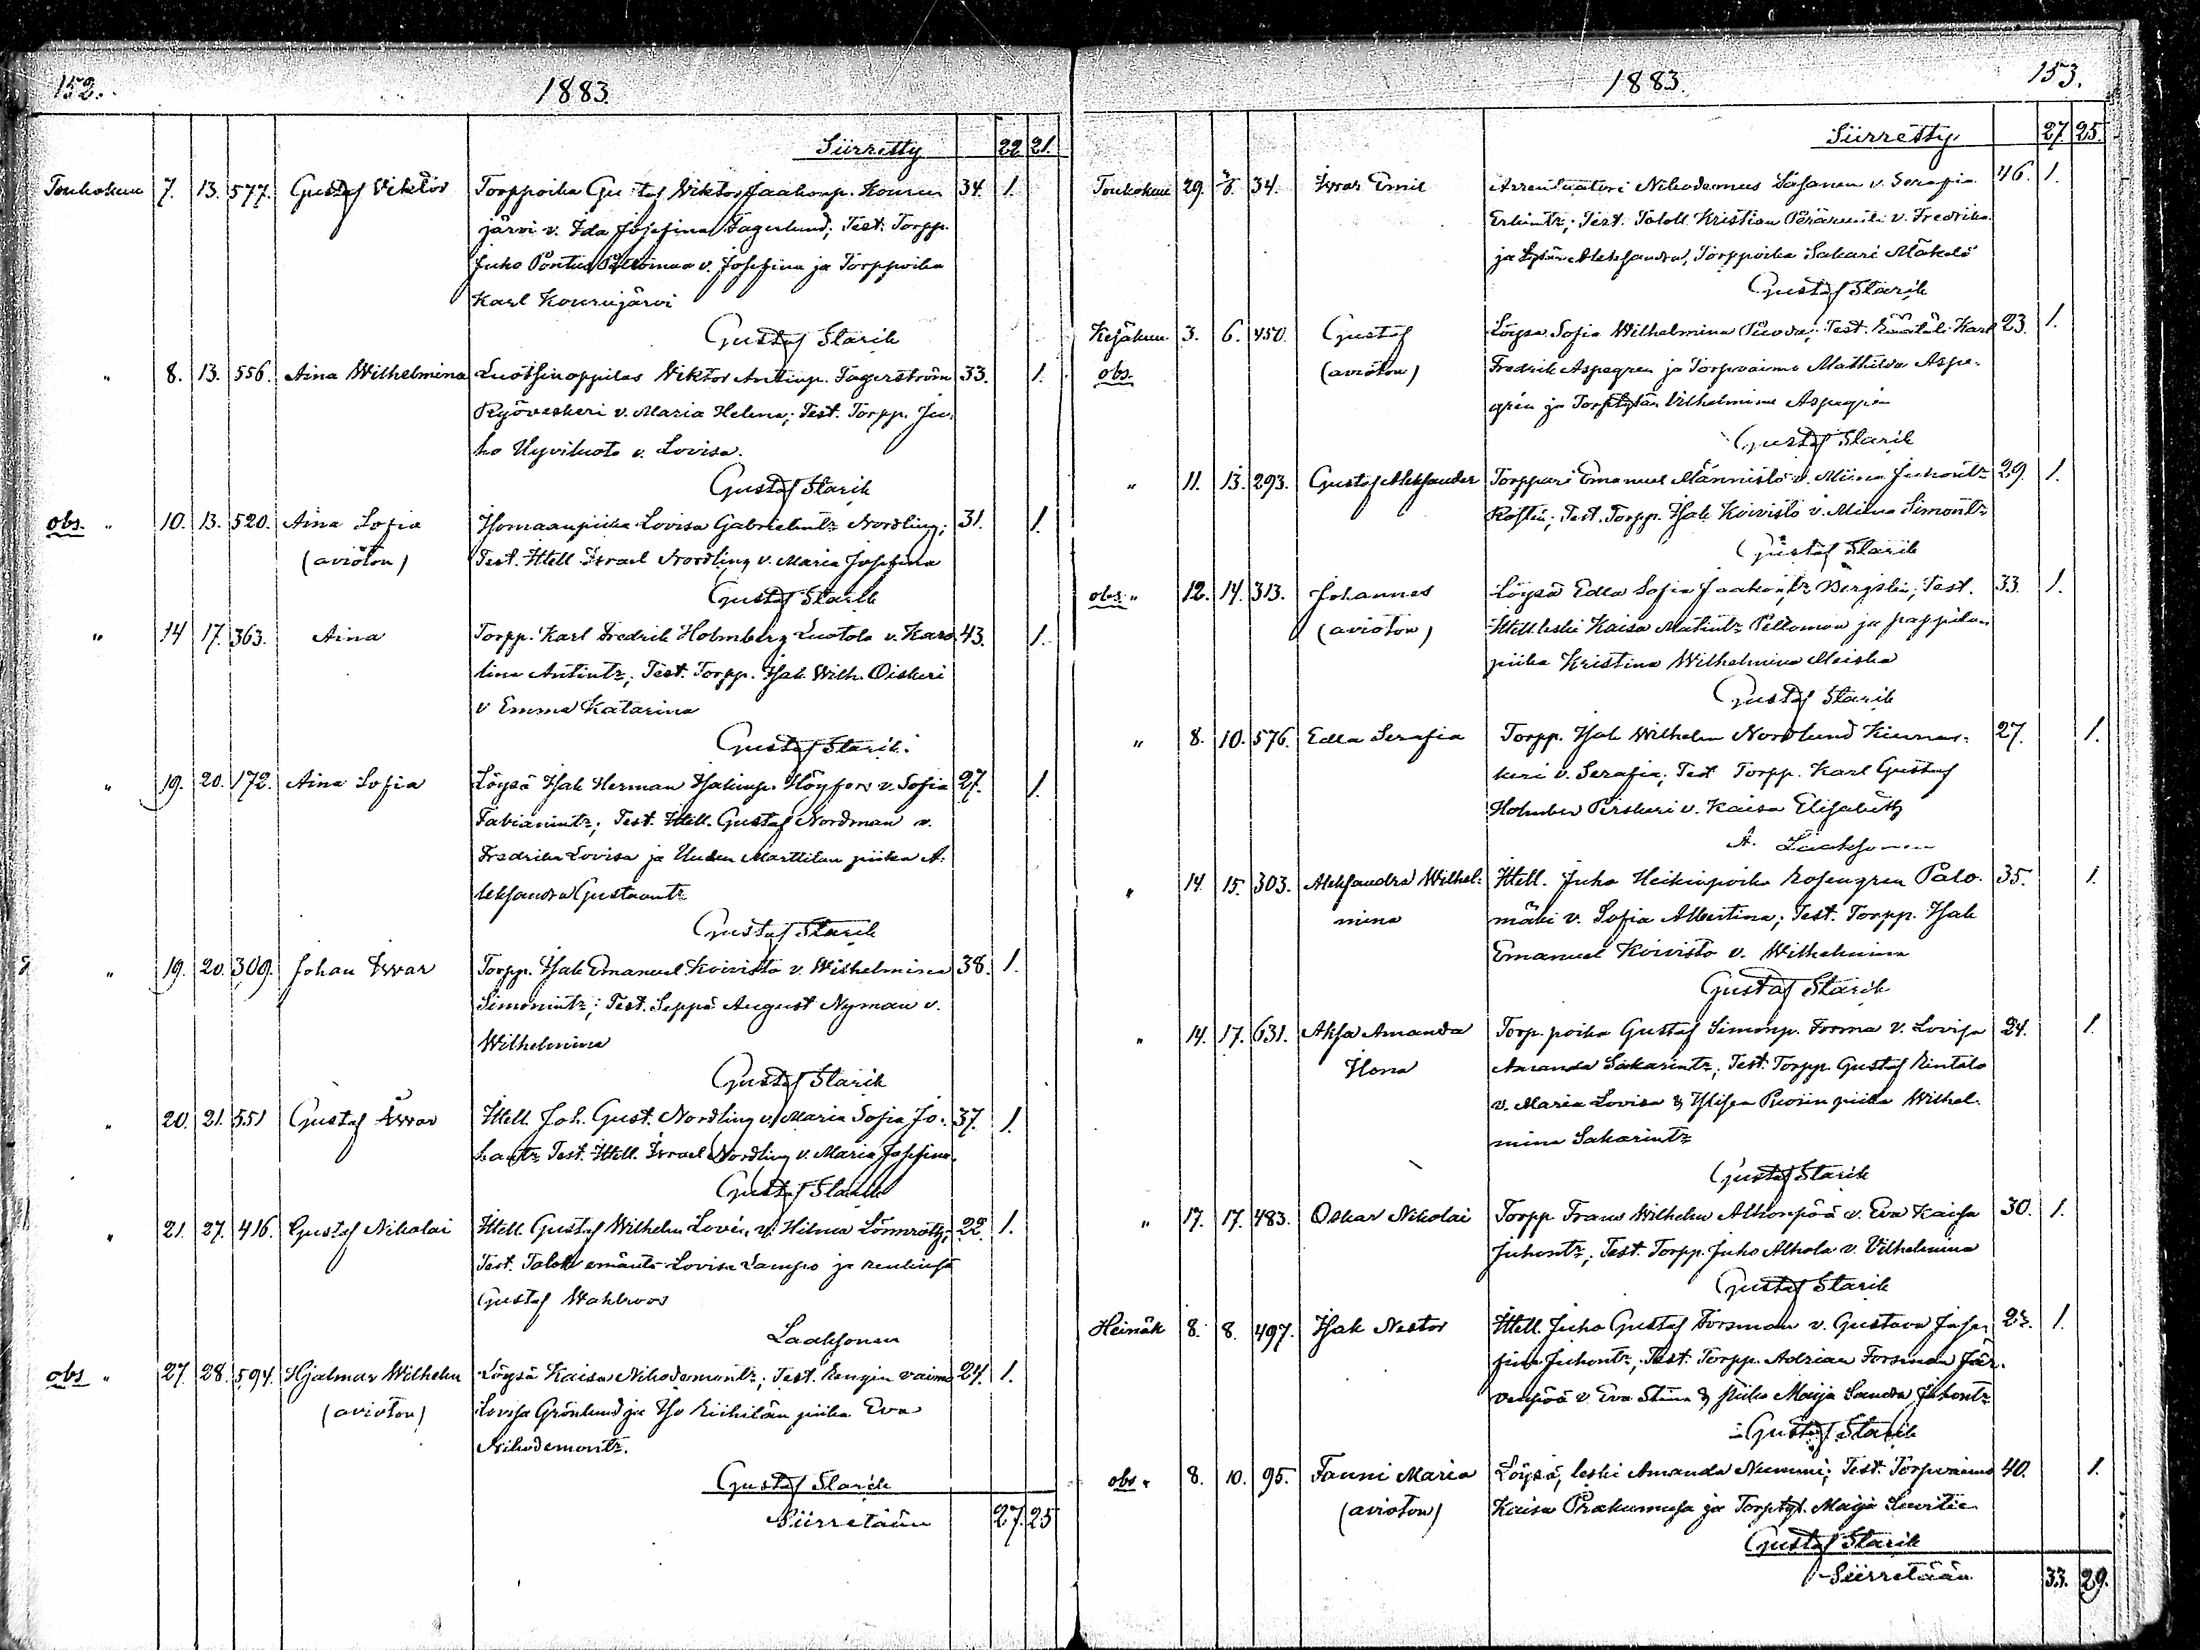 152. 1883.
Siirretty 22 21.
Toukokuu 7. 13. 577. Gustaf Viktor Torppoika Gustaf Viktor Jaakonp. Kouru 34. 1.
järvi v. Ida Josefina Fagerlund; Test. Torpp.
Juho Pontus Peltomaa v. Josefina ja Torppoika
Karl Kourujärvi
Gustaf Starik
" 8. 13. 556. Aina Wilhelmina Luotsinoppilas Viktor Antinp. Fagerström 33. 1.
Ryöveskeri v. Maria Helena; Test. Torpp. Ju-
ho Hyviluoto v. Lovisa.
Gustaf Starik
obs. " 10. 13. 520. Aina Sofia Lovisa Gabrielintr Nordling; 31. 1.
(avioton) Test. Ittell. Israel Nordling v. Maria Josefina
Gustaf Starik
" 14 17. 363. Aina Torpp. Karl Fredrik Holmberg Luotola v. Karo 43. 1.
lina Antintr; Test. Torpp. Isak Wilh. Oiskeri
v Emma Katarina
Gustaf Starik.
" 19. 20. 172. Aina Sofia Löysä Isak Herman Isakinp. Höyfors v. Sofia 27. 1.
Fabianintr; Test. Ittell. Gustaf Nordman v.
Fredrika Lovisa ja Uuden Marttilan piika A.
leksandra Gustavintr
Gustaf Starik
" 19. 20. 309. Johan Iivar Torpp. Isak Emanuel Koivisto v. Wilhelmina 38. 1.
Simonintr; Test. Seppä August Nyman v.
Wilhelmina
Gustaf Starik
" 20. 21. 551 Gustaf Iivar Ittell. Joh. Gust. Nordling v. Maria Sofia Jo- 37. 1.
hantr Test. Ittell. Israel Nordling v. Maria Josefina.
Gustaf Starik
" 21. 27. 416. Gustaf Nikolai Ittell. Gustaf Wilhelm Lovén v. Hilma Lönnroth; 22. 1.
Test. Talok emäntä Lovisa Lampo ja renki
Gustaf Wahlroos
Laaksonen
obs " 27. 28. 594. Hjalmar Wilhelm Löysä Kaisa Nikodemontr; Test. Rengin vaimo 24. 1.
(avioton) Lovisa Grönlund ja Iso Riihilän piika Eva
Nikodemontr.
Gustaf Starik
Siirretään 27. 25
1883. 153.
Siirretty 27. 25.
Toukokuu 29. 34. Iivar Emil Arrentaatori Nikodemus v. Serafia 46. 1.
Erkintr; Test. Taloll Kristian v. Fredrika
ja Aleksandra, Torppoika Sakari Mäkelä
Gustaf Starik
Kesäkuu 3. 6. 450. Gustaf Löysä Sofia Wilhelmina; Test. Räätäli Karl 23. 1.
obs. (avioton) Fredrik Aspegren ja Torpvaimo Mathilda Aspe-
grén ja Torptytär Vilhelmina Aspegrén
Gustaf Starik
" 11. 13. 293. Gustaf Aleksander Torppari Emanuel Männistö v. Miina Juhontr 29. 1.
Test. Torpp. Isak Koivisto v. Miina Simontr
Gustaf Starik
obs. " 12. 14. 313. Johannes Löysä Edla Sofia Jaakontr; Test. 33. 1.
(avioton) Ittell. leski Kaisa Matintr Peltoman ja pappilan
piika Kristina Wilhelmina Meiska
Gustaf Starik
" 8. 10. 576. Edla Serafia Torpp. Isak Wilhelm Nordlund Kiinas- 27. 1.
keri v. Serafia; Test Torpp. Karl Gustaf
Holmber Pirskeri v. Kaisa Elisabeth
A. Laaksonen
" 14. 15. 303. Aleksandra Wilhel- Ittell. Juho Heikinpoika Rosengren Palo- 35. 1.
mina mäki v. Sofia Albertina; Test. Torpp. Isak
Emanuel Koivisto v. Wilhelmina
Gustaf Starik
" 14. 17. 631. Aksa Amanda Torp. poika Gustaf Simonp. Forma v. Lovisa 24. 1.
Ilona Amanda Sakarintr; Test. Torpp. Gustaf Rintala
v. Maria Lovisa & piika Wilhel-
mina Sakarintr
Gustaf Starik
" 17. 17. 483. Oskar Nikolai Torpp Frans Wilhelm Alhonpää v. Eva Kaisa 30. 1.
Juhontr; Test. Torpp. Juho Alhola v. Vilhelmina
Gustaf Starik
Heinäk 8. 8. 497. Isak Nestor Ittell. Juho Gustaf Forsman v. Gustava Jose- 23. 1.
fina Juhontr; Test. Torpp. Adrian Forsman Jär-
venpää v Eva Stiina & piika Maija Sandra Juhontr
Gustaf Starik
obs " 8. 10. 95. Fanni Maria Löysä, leski Amanda Nummi; Test. Torpvaimo 40. 1.
(avioton) Kaisa ja Torptyt. Maija
Gustaf Starik
Siirretään 33. 29.